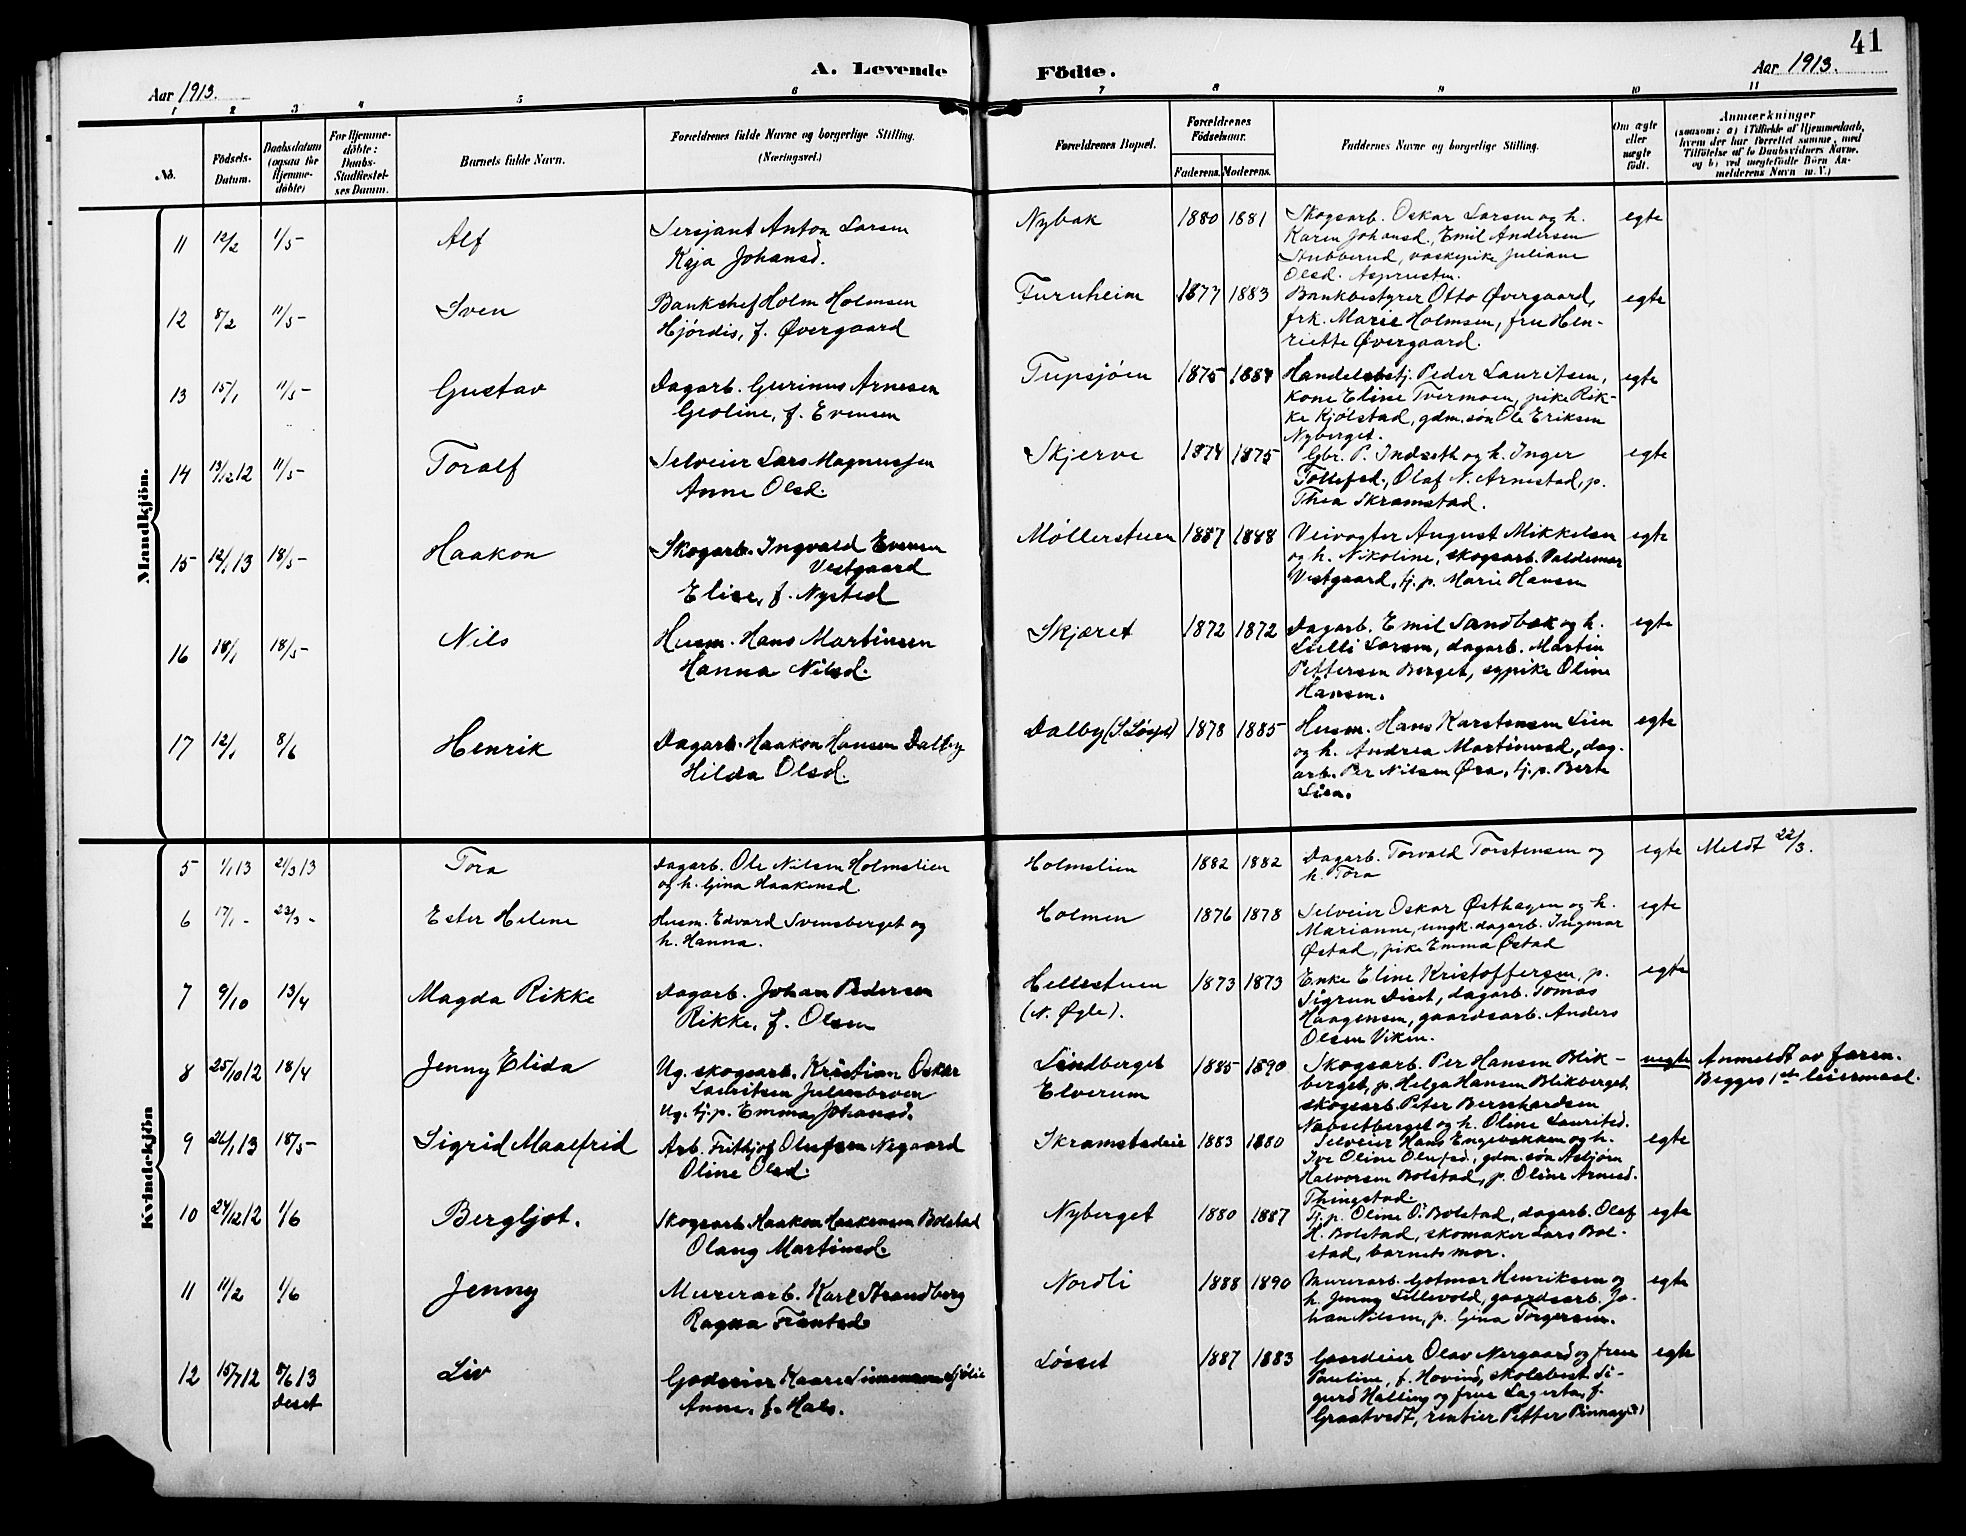 41
A. Levende Födte.
Aar 1913.
Aar 1913.
1 2 3 4 5 6 7 8 9 10 11
No.
Födsels-Datum.
Daabsdatum (ogsaa for Hjemmedöbte)
For Hjemmedöbte: Daabs-Stadfæstelses Datum.
Barnets fulde Navn.
Forældrenes fulde Navne og borgerlige Stilling. (Næringsvei.)
Forældrenes Bopæl.
Forældrenes Födselsaar.
Faderens. Moderens.
Faddernes Navne og borgerlige Stilling.
Om ægte eller uægte födt.
Anmærkninger
(saasom: a) i Tilfælde af Hjemmedaab, hvem der har forrettet samme, med Tilföielse af to Daabsvidners Navne, og b) ved uegtefödte Börn Anmelderens Navn m. V.)
Mandkjön.
11 12/2 1/5- Alf
Sersjant Anton Larsen
Kaja Johansd.
Nybak 1880 1881
Skogsarb. Oskar Larsen og h.
Karen Johansd., Emil Andersen
Stubberud, vaskepike Juliane
Olsd. Asprusten.
egte
12 8/2 11/5- Sven
Bankchef Holm Holmsen
Hjördis, f. Øvergaard
Furuheim 1877 1883
Bankbestyrer Otto Øvergaard,
frk. Marie Holmsen, fru Hen-
riette Øvergaard.
egte
13 15/1 11/5- Gustav
Dagarb. Gurinus Arnesen
Geoline, f. Evensen
Tupsjøen 1875 1884
Handelsbstj. Peder Lauritsen,
kone Eline Tvermoen, pike Rik-
ke Kjölstad, gdm. søn Ole Eriksen
Nyberget.
egte
14 13/12 12 11/5- Toralf
Selveier Lars Magnussen
Anne Olsd.
Skjerve 1874 1875
Gbr. P. Indseth og h. Inger
Tollefsd., Olaf N. Arnestad, p.
Thea Skramstad.
egte
15 12/1 13 18/5- Haakon
Skogarb. Ingvald Evensen
Vestgaard
Elise, f. Nysted
Møllerstuen 1887 1888
Veivogter August Mikkelsen
og h. Nikoline, skogsarb. Valdemar
Vestgaard, tj. p. Marie Hansen
egte
16 18/1 18/5- Nils
Husm. Hans Martinsen
Hanna Nilsd.
Skjæret 1872 1872
Dagarb. Emil Sandbæk og h.
Lulli Larsen, dagarb. Martin
Pettersen Berget, sypike Oline
Hansen.
egte
17 12/1 8/6 Henrik
Dagarb. Haakon Hansen Dalby
Hilda Olsd.
Dalby (S. Løset) 1878 1885
Husm. Hans Karstensen Lien
og h. Andrea Martinusd, dag.
arb. Per Nilsen Øra, tj. p. Berte
Lien.
egte
Kvindekjön
5 1/1 13 21/3 13 Tora
Dagarb. Ole Nilsen Holmslien
og h. Gina Haakensd.
Holmslien 1882 1882
Dagarb. Torvald Torstensen og
h. Tora
egte Meldt 22/3.
6 17/1- 23/3- Ester Helene
Husm. Edvard Svensberget og
h. Hanna.
Holmen 1876 1878
Selveier Oskar Østhagen og h.
Marianne, ungk. dagarb. Ingmar
Østad, pike Emma Østad
egte
7 9/10 13/4 Magda Rikke
Dagarb. Johan Pedersen
Rikke, f. Olsen
Hellestuen
(N. Øgle).
1873 1873
Enke Eline Kristoffersen, p.
Sigrun Deset, dagarb. Tomas
Haagensen, gaardsarb. Anders
Olsen Viken.
egte
8 25/10 12 18/4 Jenny Elida
Ug. skogsarb. Kristian Oskar
Lauritsen Julusbroen
Ug. tj. p. Emma Johansd.
Lindberget
Elverum
1885 1890
Skogsarb. Per Hansen Blik-
berget, p. Helga Hansen Blikberget,
skogsarb. Peter Bernhardsen
Nabsetberget og h. Oline Lauritsd.
uegte Anmeldt av faren.
Begges 1ste leiermaal.
9 26/1 13 18/5- Sigrid Maalfrid
Arb. Frithjof Olufsen Negaard
Oline Olsd.
Skramstadeie 1883 1880
Selveier Hans Engebakken og h.
Ive Oline Olufsd., gdm. søn Asbjørn
Halvorsen Bolstad, p. Oline Arnesd.
Thingstad.
egte
10 24/12 12 1/6 Bergljot.
Skogsarb Haakon Haakensen Bolstad
Olaug Martinsd.
Nyberget 1880 1887
Tj. p. Oline O. Bolstad, dagarb. Olaf
H. Bolstad, skomaker Lars Bol-
stad, barnets mor.
egte
11 11/2 1/6 Jenny
Murerarb. Karl Strandberg
Ragna Frantsd.
Nordli 1888 1890
Murerarb. Gotmar Henriksen og
h. Jenny Lillevold, gaardsarb. Jo-
han Nilsen, p. Gina Torgersen.
egte
12 15/7 12 8/6 13 Deset Liv
Godseier Kaare Sjølie
Anne, f. Hals.
Løsset 1887 1883
Gaardeier Olav Nergaard og frue
Pauline, f. Hovind, skolebest. Si-
gurd Halling og frue Lagerta, f.
Graatvedt, rentier Petter Pinnay(?)
egte